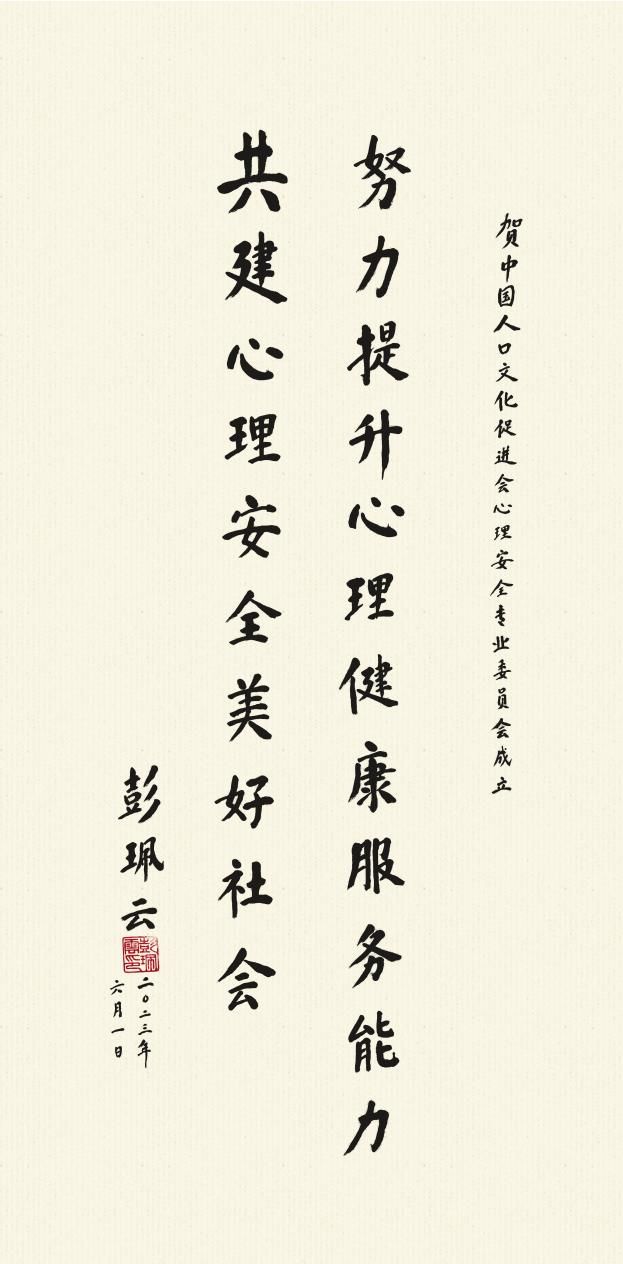 贺中国人口文化促进会心理安全专业委员会成立
努力提升心理健康服务能力
共建心理安全美好社会
彭珮云
彭珮雲印
二〇二三年
六月一日